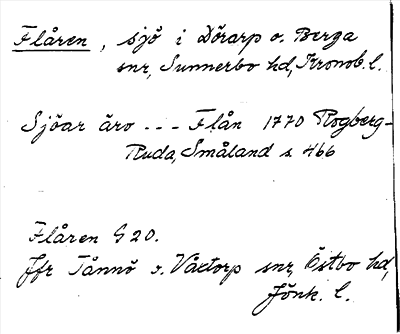 Flåren, sjö i Dörarp o. Berga
snr, Sunnerbo hd, Kronob. l.
Sjöar äro --- Flån 1770 Rogberg-
Ruda, Småland s. 466
Flåren G 20.
Jfr Tånnö o. Våxtorp snr, Östbo hd,
Jönk. l.